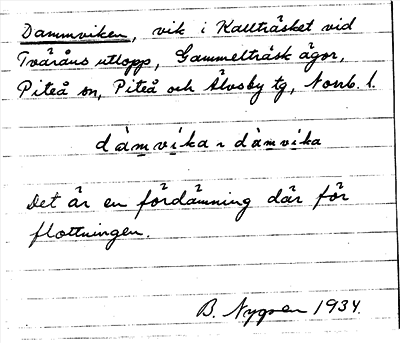 Dammviken, vik i Kallträsket vid
Tväråns utlopp, Gammelträsk ägor,
Piteå sn, Piteå och Älvsby tg, Norrb. l.
dàmvika ~ dàmvika
Det är en fördämning där för
flottningen.
B. Nygren 1934.